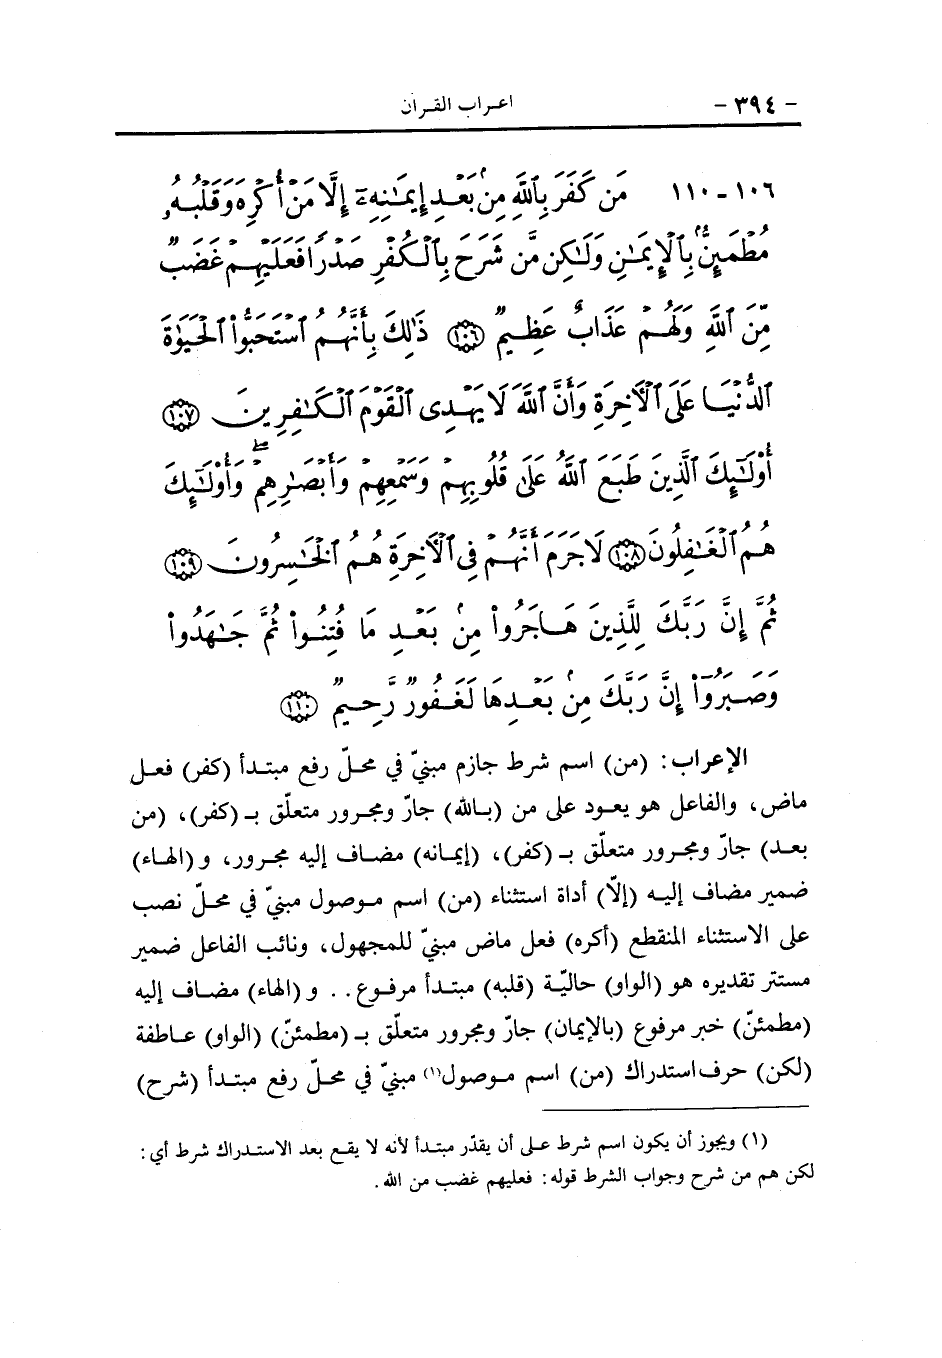 - ٣٩٤ -
اعراب القرآن
١٠٦ - ١١٠ مَن كَفَرَ بِٱللَّهِ مِنۢ بَعْدِ إِيمَٰنِهِۦٓ إِلَّا مَنْ أُكْرِهَ وَقَلْبُهُۥ
مُطْمَئِنٌّۢ بِٱلْإِيمَٰنِ وَلَٰكِن مَّن شَرَحَ بِٱلْكُفْرِ صَدْرًا فَعَلَيْهِمْ غَضَبٌ
مِّنَ ٱللَّهِ وَلَهُمْ عَذَابٌ عَظِيمٌ ﴿١٠٦﴾ ذَٰلِكَ بِأَنَّهُمُ ٱسْتَحَبُّوا۟ ٱلْحَيَوٰةَ
ٱلدُّنْيَا عَلَى ٱلْأَخِرَةِ وَأَنَّ ٱللَّهَ لَا يَهْدِى ٱلْقَوْمَ ٱلْكَٰفِرِينَ ﴿١٠٧﴾
أُو۟لَٰٓئِكَ ٱلَّذِينَ طَبَعَ ٱللَّهُ عَلَىٰ قُلُوبِهِمْ وَسَمْعِهِمْ وَأَبْصَٰرِهِمْ ۖ وَأُو۟لَٰٓئِكَ
هُمُ ٱلْغَٰفِلُونَ ﴿١٠٨﴾ لَا جَرَمَ أَنَّهُمْ فِى ٱلْأَخِرَةِ هُمُ ٱلْخَٰسِرُونَ ﴿١٠٩﴾
ثُمَّ إِنَّ رَبَّكَ لِلَّذِينَ هَاجَرُوا۟ مِنۢ بَعْدِ مَا فُتِنُوا۟ ثُمَّ جَٰهَدُوا۟
وَصَبَرُوٓا۟ إِنَّ رَبَّكَ مِنۢ بَعْدِهَا لَغَفُورٌ رَّحِيمٌ ﴿١١٠﴾
الإعراب: (من) اسم شرط جازم مبنيّ في محلّ رفع مبتدأ (كفر) فعل
ماض، والفاعل هو يعود على من (بالله) جارّ ومجرور متعلّق بـ (كفر)، (من
بعد) جارّ ومجرور متعلّق بـ (كفر)، (إيمانه) مضاف إليه مجرور، و (الهاء)
ضمير مضاف إليه (إلّا) أداة استثناء (من) اسم موصول مبنيّ في محلّ نصب
على الاستثناء المنقطع (أكره) فعل ماض مبنيّ للمجهول، ونائب الفاعل ضمير
مستتر تقديره هو (الواو) حاليّة (قلبه) مبتدأ مرفوع . . و (الهاء) مضاف إليه
(مطمئنّ) خبر مرفوع (بالإيمان) جارّ ومجرور متعلّق بـ (مطمئنّ) (الواو) عاطفة
(لكن) حرف استدراك (من) اسم موصول(١) مبنيّ في محلّ رفع مبتدأ (شرح)
(١) ويجوز أن يكون اسم شرط على أن يقدّر مبتدأ لأنه لا يقع بعد الاستدراك شرط أي:
لكن هم من شرح وجواب الشرط قوله: فعليهم غضب من الله.